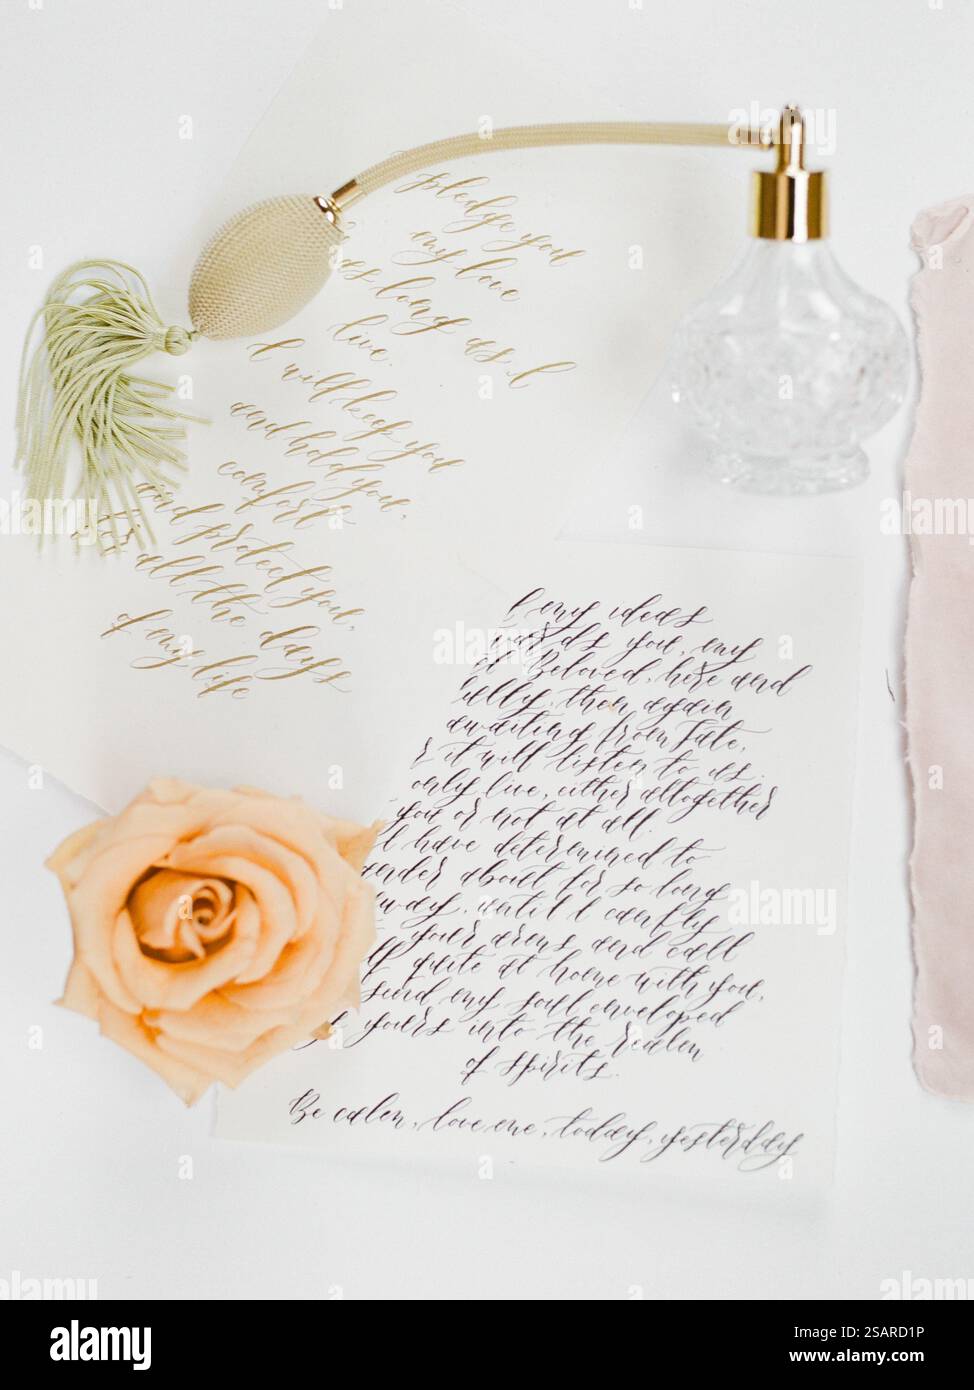 pledge you
my love
as long as I
live.
I will keep you
and hold you,
comfort
and protect you,
all the days
of my life
my ideas
you, my
Beloved, here and
then again
awaiting from Fate,
it will listen to us.
only live, either altogether
you or not at all.
I have determined to
about for so long
until I can fly
your arms and call
quite at home with you,
send my soul enveloped
yours into the realm
of spirits.
Be calm, love me, today, yesterday
alamy
Image ID: 2SARD1P
www.alamy.com